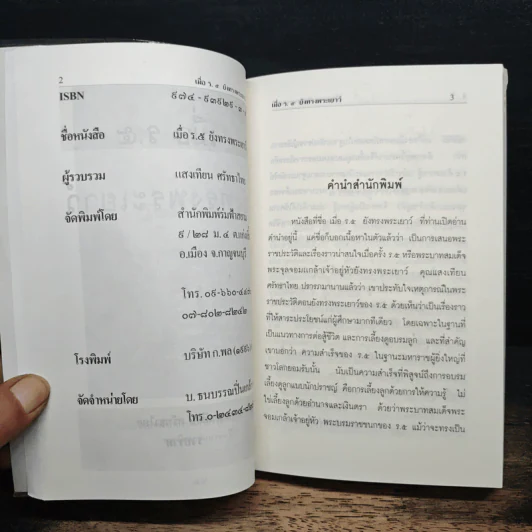 2 เมื่อ ร.๕ ยังทรงพระเยาว์
ISBN ๙๗๔-๙๓๙๒๙-๓-
ชื่อหนังสือ เมื่อ ร.๕ ยังทรงพระเยาว์
ผู้รวบรวม แสงเทียน ศรัทธาไทย
จัดพิมพ์โดย สำนักพิมพ์
๙/๒๘ ม.๔
อ.เมือง จ.กาญจนบุรี
โทร. ๐๙-๖๖๐
๐๗-๘๐๒-๘๒๔๒
โรงพิมพ์ บริษัท ก.พล
จัดจำหน่ายโดย บ. ธนบรรณปิ่นเกล้า
โทร.๐-๒๔๓๔-
เมื่อ ร.๕ ยังทรงพระเยาว์ 3
คำนำสำนักพิมพ์
หนังสือที่ชื่อ เมื่อ ร.๕ ยังทรงพระเยาว์ ที่ท่านเปิดอ่าน
คำนำอยู่นี้ แค่ชื่อก็บอกเนื้อหาในตัวแล้วว่า เป็นการเสนอพระ
ราชประวัติและเรื่องราวน่าสนใจเมื่อครั้ง ร.๕ หรือพระบาทสมเด็จ
พระจุลจอมเกล้าเจ้าอยู่หัวยังทรงพระเยาว์ คุณแสงเทียน
ศรัทธาไทย ปรารภมานานแล้วว่า เขาประทับใจเหตุการณ์ในพระ
ราชประวัติตอนยังทรงพระเยาว์ของ ร.๕ ด้วยเห็นว่าเป็นเรื่องราว
ที่ให้สาระประโยชน์แก่ผู้ศึกษามากทีเดียว โดยเฉพาะในฐานที่
เป็นแนวทางการต่อสู้ชีวิต และการเลี้ยงดูอบรมลูก และที่สำคัญ
เขาบอกว่า ความสำเร็จของ ร.๕ ในฐานะมหาราชผู้ยิ่งใหญ่ที่
ชาวโลกยอมรับนั้น เป็นความสำเร็จที่พิสูจน์ถึงการอบรม
เลี้ยงดูลูกแบบนักปราชญ์ คือการเลี้ยงลูกด้วยการให้ความรู้ ไม่
ใช่เลี้ยงลูกด้วยอำนาจและเงินตรา ด้วยว่าพระบาทสมเด็จพระ
จอมเกล้าเจ้าอยู่หัว พระบรมราชชนกของ ร.๕ แม้ว่าจะทรงเป็น